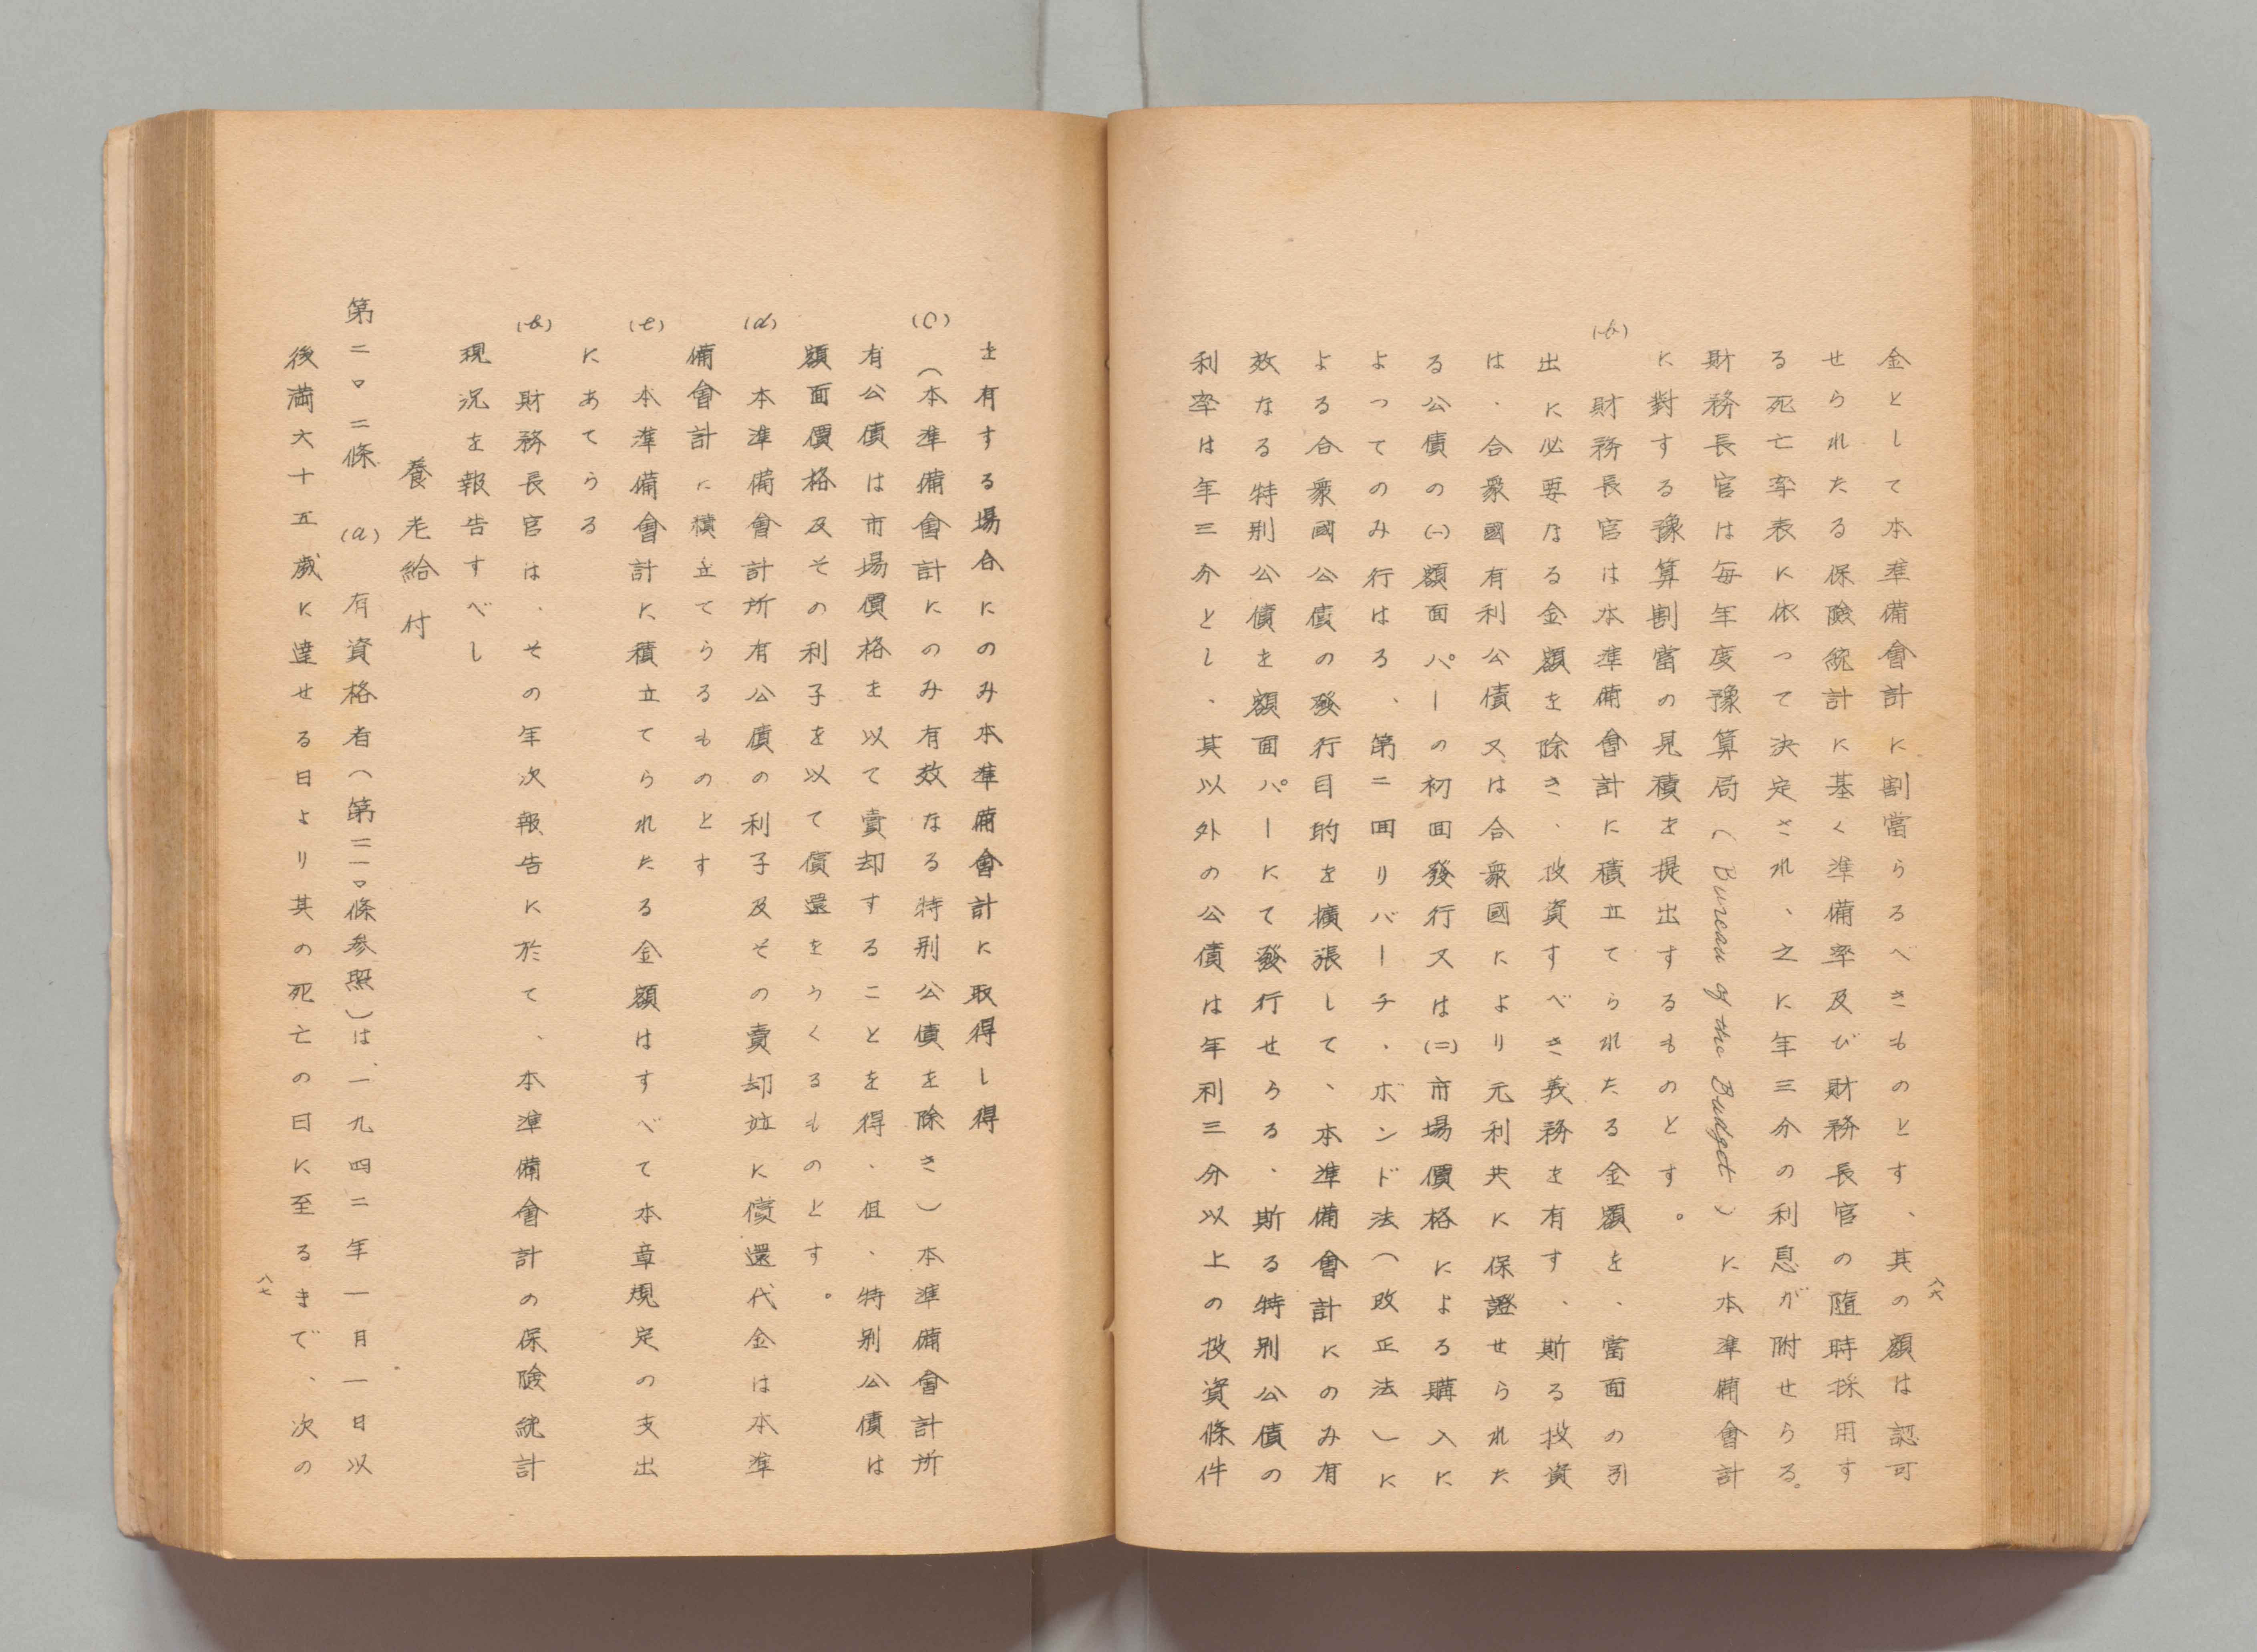 金として本準備會計に割當らるべきものとす、其の額は認可
せられたる保險統計に基く準備率及び財務長官の隨時採用す
る死亡率表に依つて決定され、之に年三分の利息が附せらる。
財務長官は毎年度豫算局(Bureau of the Budget)に本準備會計
に對する豫算割當の見積を提出するものとす。
(b) 財務長官は本準備會計に積立てられたる金額を、當面の引
出に必要なる金額を除き、投資すべき義務を有す、斯る投資
は、合衆國有利公債又は合衆國により元利共に保證せられた
る公債の(一)額面パーの初回發行又は(二)市場價格による購入に
よつてのみ行はる、第二回リバーチ・ボンド法(改正法)に
よる合衆國公債の發行目的を擴張して、本準備會計にのみ有
效なる特別公債を額面パーにて發行せらる、斯る特別公債の
利率は年三分とし、其以外の公債は年利三分以上の投資條件
八六
を有する場合にのみ本準備會計に取得し得
(c) (本準備會計にのみ有效なる特別公債を除き)本準備會計所
有公債は市場價格を以て賣却することを得、但、特別公債は
額面價格及その利子を以て償還をうくるものとす。
(d) 本準備會計所有公債の利子及その賣却竝に償還代金は本準
備會計に積立てらるものとす
(e) 本準備會計に積立てられたる金額はすべて本章規定の支出
にあてらる
(f) 財務長官は、その年次報告に於て、本準備會計の保險統計
現況を報告すべし
養老給付
第二〇二條 (a) 有資格者(第二一〇條參照)は、一九四二年一月一日以
後満六十五歳に達せる日より其の死亡の日に至るまで、次の
八七